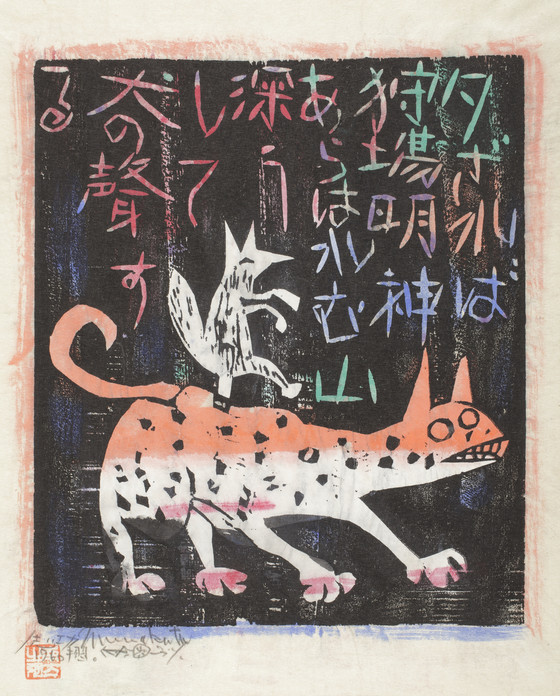 夕ざれば
狩場明神
あらはれむ山
深う
して
犬の聲す
る